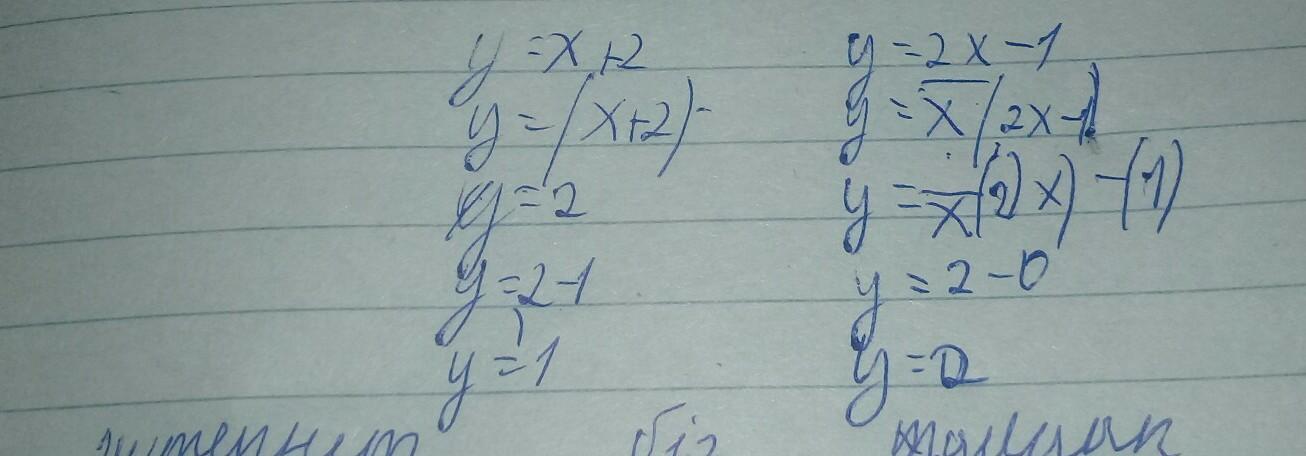 y = x + 2
y = (x + 2)-
y = 2
y = 2 - 1
y = 1
y = 2x - 1
y = x (2x - 1)
y = x (2) x) - (1)
y = 2 - 0
y = 2
біз